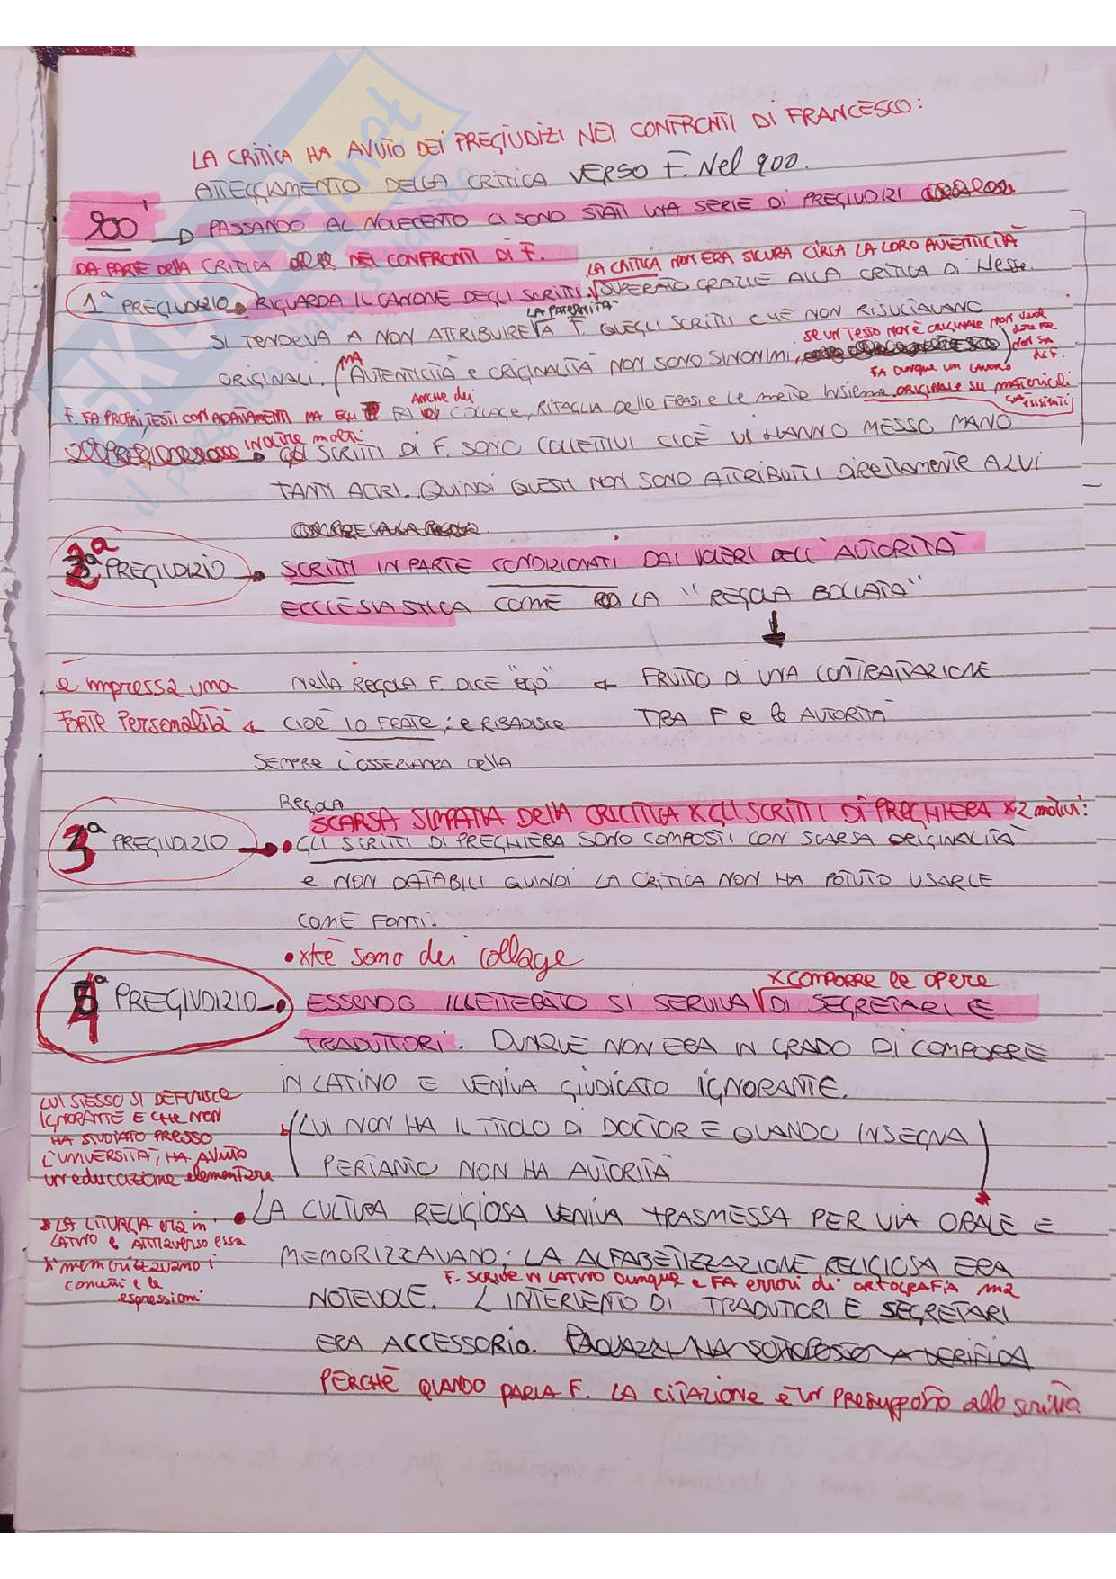 LA CRITICA HA AVUTO DEI PREGIUDIZI NEI CONFRONTI DI FRANCESCO:
ATTEGGIAMENTO DELLA CRITICA VERSO F. Nel 900.
900' PASSANDO AL NOVECENTO CI SONO STATI UNA SERIE DI PREGIUDIZI
DA PARTE DELLA CRITICA NEI CONFRONTI DI F.
LA CRITICA NON ERA SICURA CIRCA LA LORO AUTENTICITÀ
1° PREGIUDIZIO RIGUARDA IL CANONE DEGLI SCRITTI. SUPERATO GRAZIE ALLA CRITICA DI Hesse.
LA PATERNITÀ
SI TENDEVA A NON ATTRIBUIRE A F. QUEGLI SCRITTI CHE NON RISULTAVANO
se un testo non è originale non deve
dire che non sia di F.
ORIGINALI. MA AUTENTICITÀ e ORIGINALITÀ NON SONO SINONIMI,
FA dunque un lavoro
F. FA PROPRI TESTI CON ADATTAMENTI MA FA anche dei COLLAGE, RITAGLIA delle FRASI e Le mette Insieme originale su materiali
esistenti
inoltre molti
GLI SCRITTI DI F. SONO COLLETTIVI CIOÈ VI HANNO MESSO MANO
TANTI ALTRI. QUINDI QUESTI NON SONO ATTRIBUITI DIRETTAMENTE A LUI
2ª PREGIUDIZIO SCRITTI IN PARTE CONDIZIONATI DAI VOLERI DELL'AUTORITÀ
ECCLESIASTICA COME LA "REGOLA BOLLATA"
è impressa una nella REGOLA F. DICE "EGO" FRUTTO DI UNA CONTRATTAZIONE
FORTE Personalità CIOÈ IO FRATE; e RIBADISCE TRA F e le AUTORITÀ
SEMPRE L'OSSERVANZA DELLA
REGOLA
SCARSA SIMPATIA DELLA CRICITICA X GLI SCRITTI DI PREGHIERA X 2 motivi:
3ª PREGIUDIZIO • GLI SCRITTI DI PREGHIERA SONO COMPOSTI CON SCARSA ORIGINALITÀ
e NON DATABILI QUINDI LA CRITICA NON HA POTUTO USARLE
COME FONTI.
• xkè sono dei collage
X COMPORRE le opere
4ª PREGIUDIZIO • ESSENDO ILLETTERATO SI SERVIVA DI SEGRETARI E
TRADUTTORI. DUNQUE NON ERA IN GRADO DI COMPORRE
IN LATINO E VENIVA GIUDICATO IGNORANTE.
LUI STESSO SI DEFINISCE
IGNORANTE E CHE NON
HA STUDIATO PRESSO
L'UNIVERSITÀ, HA AVUTO
un'educazione elementare
LUI NON HA IL TITOLO DI DOCTOR E QUANDO INSEGNA
PERTANTO NON HA AUTORITÀ
• LA CULTURA RELIGIOSA VENIVA TRASMESSA PER VIA ORALE E
* LA LITURGIA era in
LATINO e ATTRAVERSO essa
* memorizzavano i
comuni e le
espressioni
MEMORIZZAVANO; LA ALFABETIZZAZIONE RELIGIOSA ERA
F. SCRIVE IN LATINO dunque e FA errori di ORTOGRAFIA ma
NOTEVOLE. L'INTERVENTO DI TRADUTTORI E SEGRETARI
ERA ACCESSORIO.
PERCHÈ QUANDO PARLA F. LA CITAZIONE È UN PRESUPPOSTO allo scritto